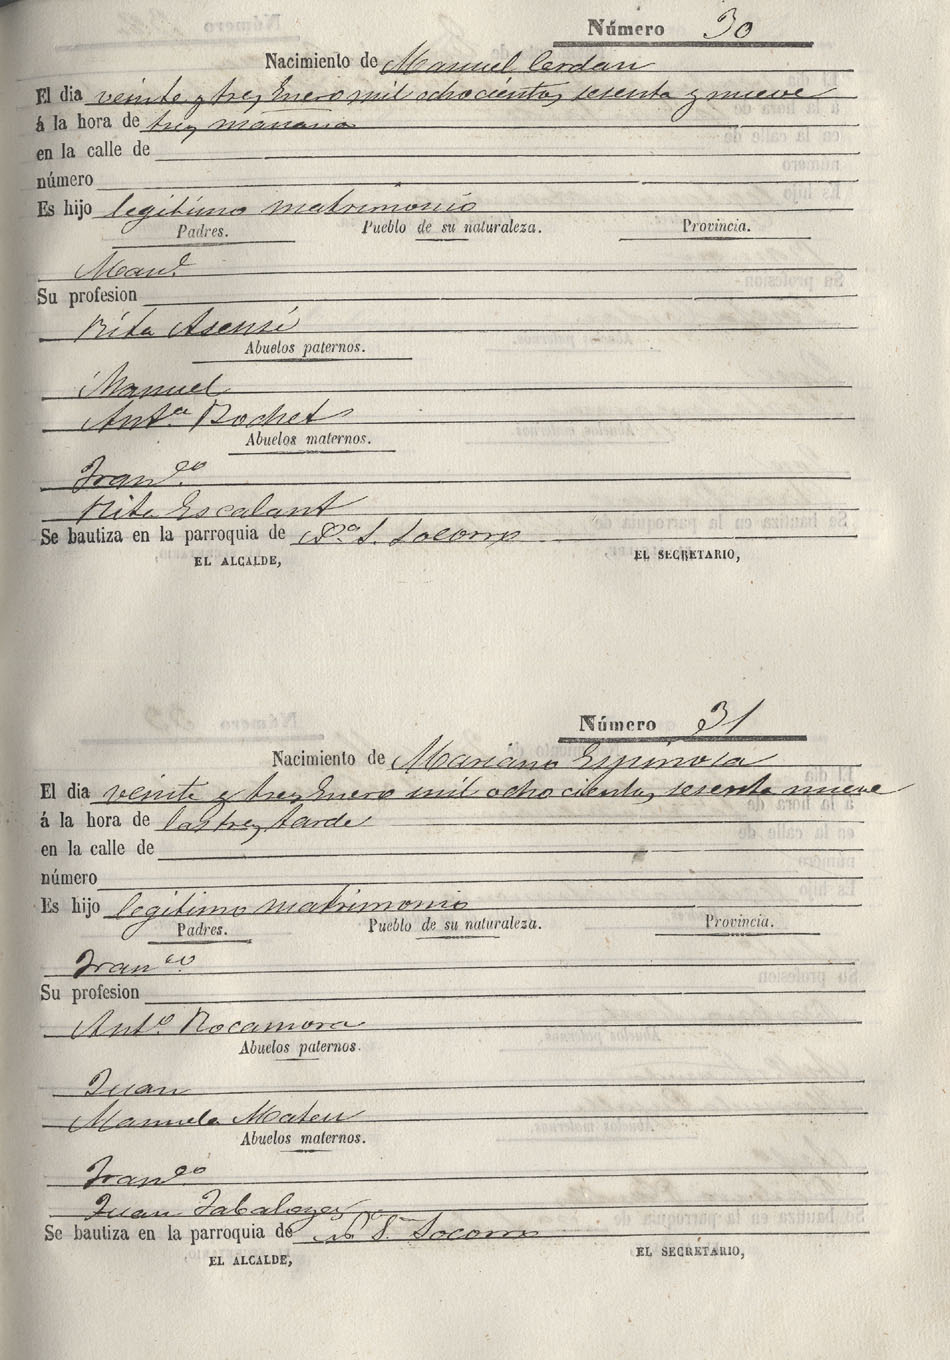 Número 30
Nacimiento de Manuel Cerdan
El dia veinte y tres Enero mil ochocientos sesenta y nueve
á la hora de tres mañana
en la calle de
número
Es hijo legitimo matrimonio
Padres. Pueblo de su naturaleza. Provincia.
Manl.
Su profesion
Rita Asensi
Abuelos paternos.
Manuel
Anta. Bochet
Abuelos maternos.
Franco.
Rita Escalant
Se bautiza en la parroquia de S. Socorro
EL ALCALDE, EL SECRETARIO,
Número 31
Nacimiento de Mariano Espinosa
El dia veinte y tres Enero mil ochocientos sesenta nueve
á la hora de las tres tarde
en la calle de
número
Es hijo legitimo matrimonio
Padres. Pueblo de su naturaleza. Provincia.
Franco.
Su profesion
Anta. Rocamora
Abuelos paternos.
Juan
Manuela Mateu
Abuelos maternos.
Franco.
Juan
Se bautiza en la parroquia de Socorro
EL ALCALDE, EL SECRETARIO,